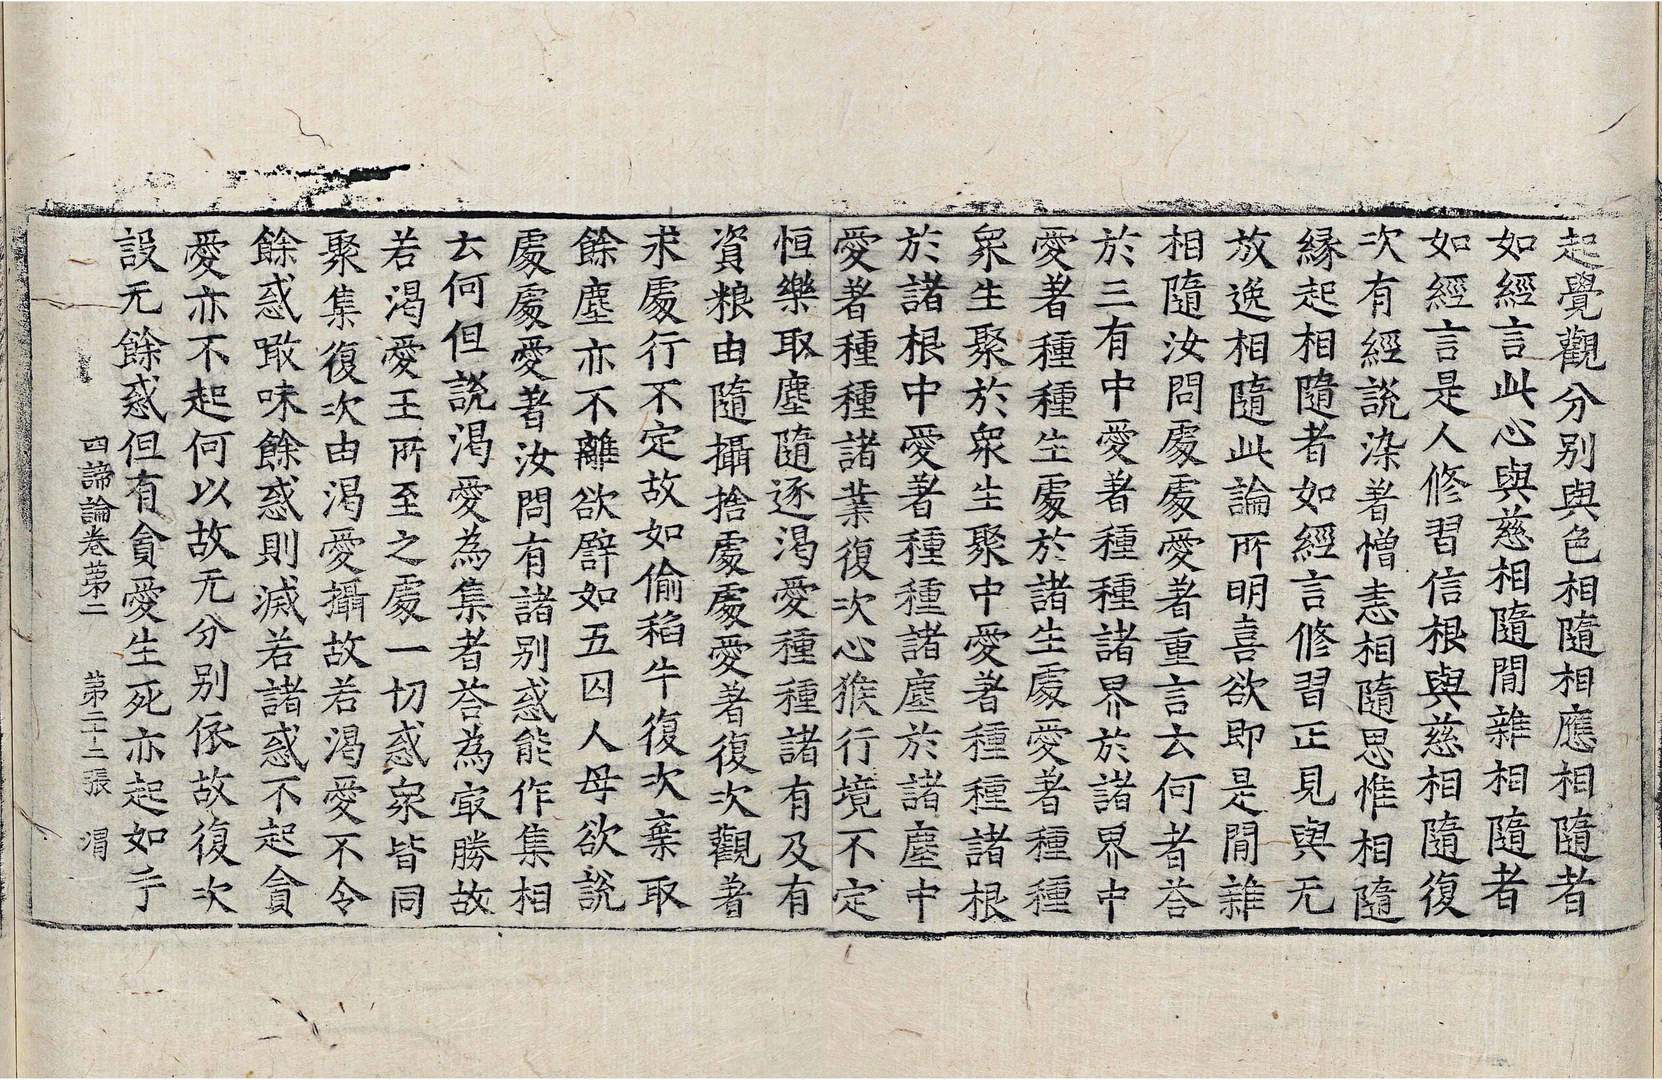 起覺觀分别與色相隨相應相隨者
如經言此心與慈相隨閒雜相隨者
如經言是人修習信根與慈相隨復
次有經說染著憎恚相隨思惟相隨
縁起相隨者如經言修習正見與无
放逸相隨此論所明喜欲即是閒雜
相隨汝問處處愛著重言云何者荅
於三有中愛著種種諸界於諸界中
愛著種種生處於諸生處愛著種種
衆生聚於衆生聚中愛著種種諸根
於諸根中愛著種種諸塵於諸塵中
愛著種種諸業復次心猴行境不定
恒樂取塵隨逐渴愛種種諸有及有
資粮由隨攝捨處處愛著復次觀著
求處行不定故如偷稻牛復次棄取
餘塵亦不離欲譬如五囚人母欲說
處處愛著汝問有諸别惑能作集相
云何但說渴愛為集者荅為㝡勝故
若渴愛王所至之處一切惑衆皆同
聚集復次由渴愛攝故若渴愛不令
餘惑噉味餘惑則滅若諸惑不起貪
愛亦不起何以故无分别依故復次
設无餘惑但有貪愛生死亦起如于
四諦論卷苐二　苐二十二張　渭